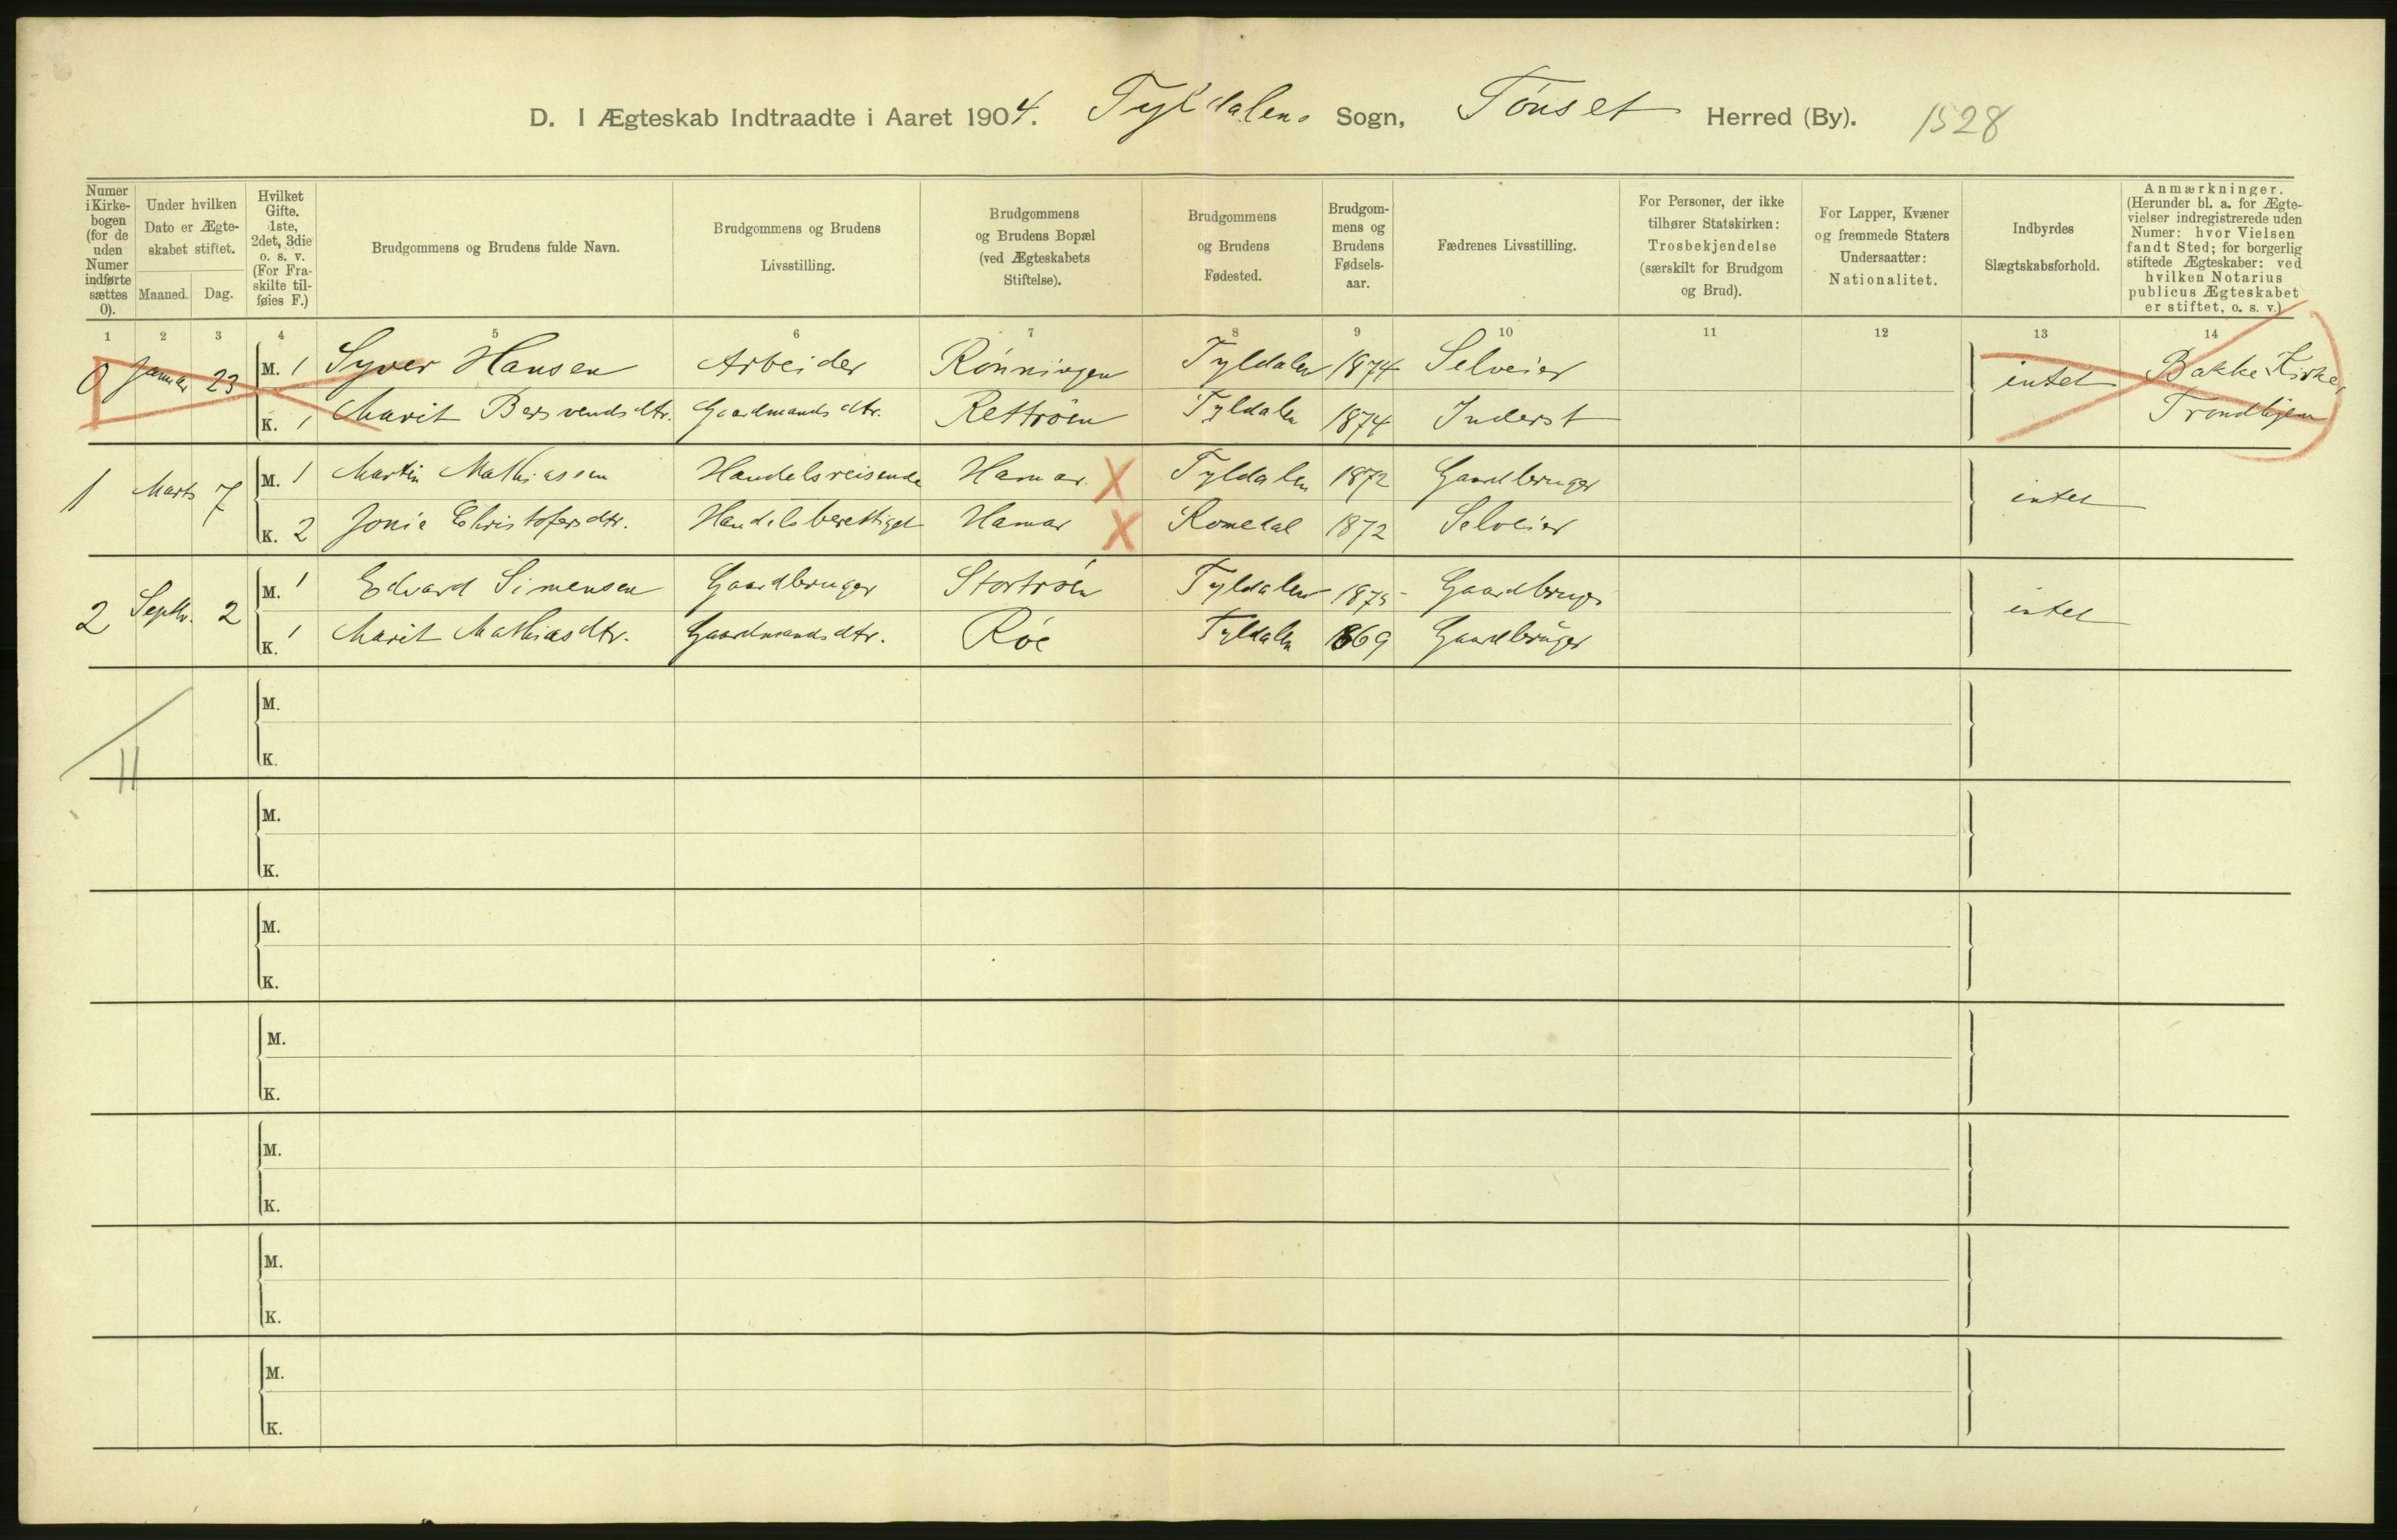 D. I Ægteskab Indtraadte i Aaret 1904. Tyldalens Sogn, Tönset Herred (By). 1528
Numer i Kirkebogen (for de uden Numer indførte sættes 0).
Under hvilken Dato er Ægteskabet stiftet.
Maaned. Dag.
Hvilket Gifte. 1ste, 2det, 3die o. s. v. (For Fraskilte tilføies F.)
Brudgommens og Brudens fulde Navn.
Brudgommens og Brudens Livsstilling.
Brudgommens og Brudens Bopæl (ved Ægteskabets Stiftelse).
Brudgommens og Brudens Fødested.
Brudgommens og Brudens Fødselsaar.
Fædrenes Livsstilling.
For Personer, der ikke tilhører Statskirken: Trosbekjendelse (særskilt for Brudgom og Brud).
For Lapper, Kvæner og fremmede Staters Undersaatter: Nationalitet.
Indbyrdes Slægtskabsforhold.
Anmærkninger. (Herunder bl. a. for Ægtevielser indregistrerede uden Numer: hvor Vielsen fandt Sted; for borgerlig stiftede Ægteskaber: ved hvilken Notarius publicus Ægteskabet er stiftet, o. s. v.)
1 2 3 4 5 6 7 8 9 10 11 12 13 14
0 Januar 23 M. 1 Syver Hansen Arbeider Rönningen Tyldalen 1874 Selveier intet Bakke Kirke,
K. 1 Marit Bersvendsdtr. Gaardmandsdtr. Rettröen Tyldalen 1874 Inderst Trondhjem
1 Marts 7 M. 1 Martin Mathiassen Handelsreisende Hamar. X Tyldalen 1872 Gaardbruger intet
K. 2 Jonie Christofersdtr. Handelsberettiget Hamar X Romedal 1872 Selveier
2 Septbr. 2 M. 1 Edvard Simensen Gaardbruger Stortröen Tyldalen 1875 Gaardbruger intet
K. 1 Marit Mathiasdtr. Gaardmandsdtr. Röe Tyldalen 1869 Gaardbruger
M.
K.
11
M.
K.
M.
K.
M.
K.
M.
K.
M.
K.
M.
K.